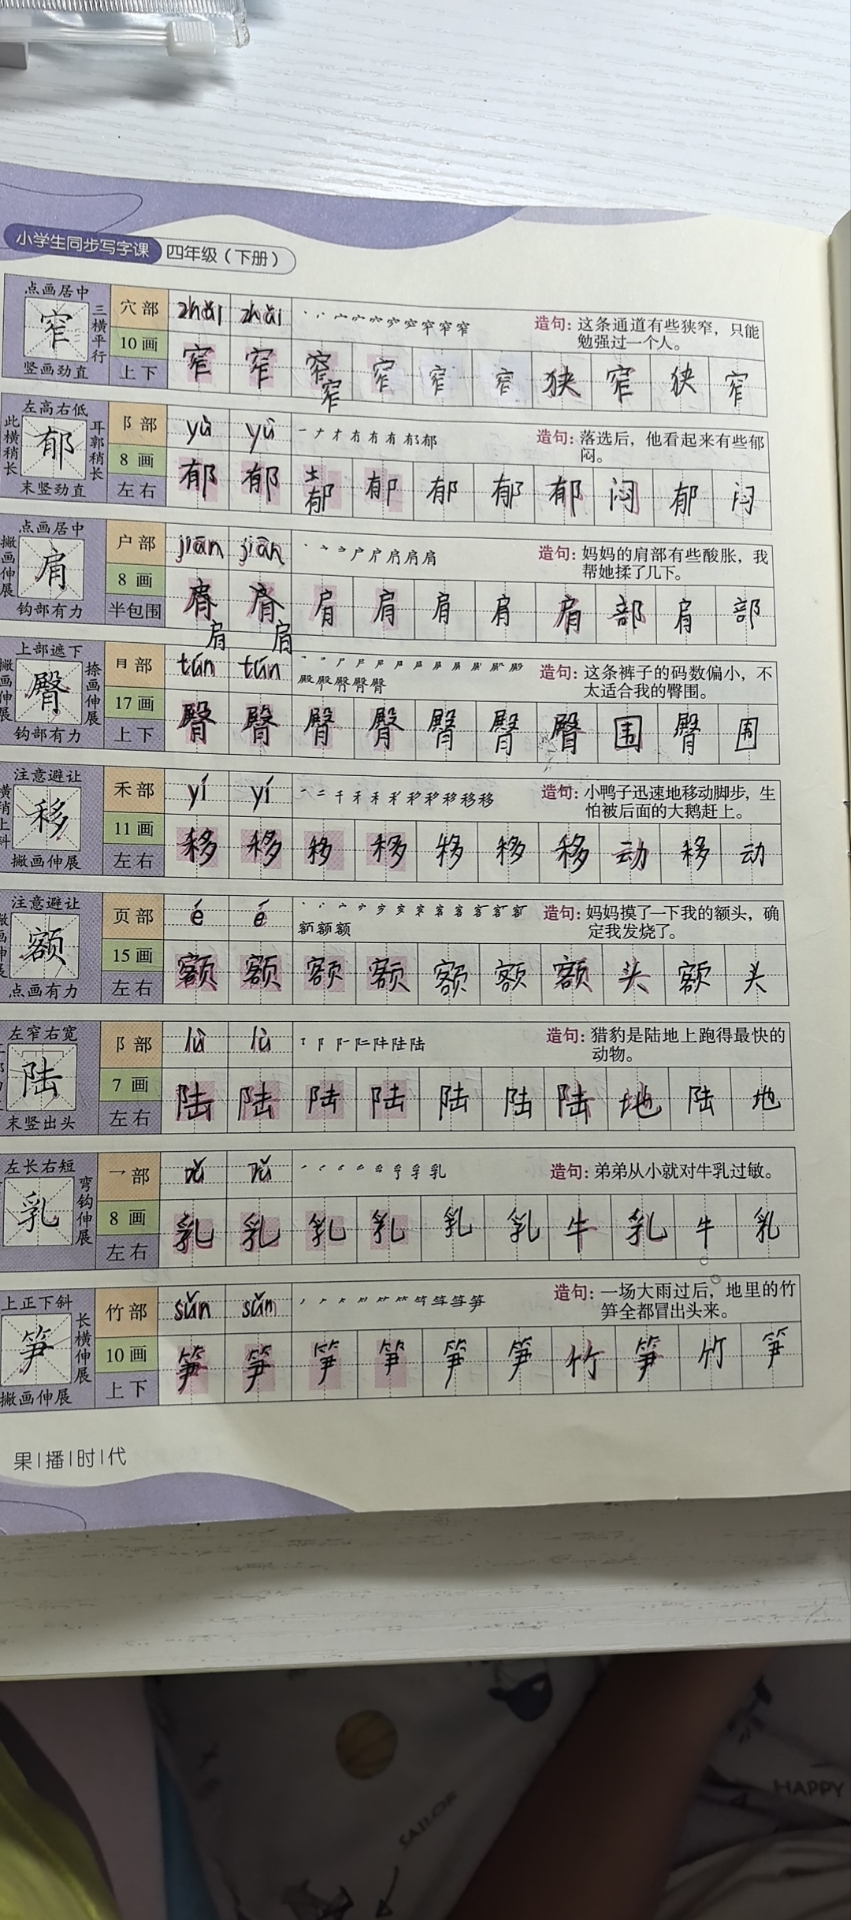 小学生同步写字课 四年级(下册)
点画居中
窄
三横平行
竖画劲直
穴部
10画
上下
zhǎi zhǎi
造句:这条通道有些狭窄,只能
勉强过一个人。
窄 窄 窄 窄 窄 窄 狭 窄 狭 窄
窄
左高右低
此横稍长
郁
耳郭稍长
末竖劲直
阝部
8画
左右
yù yù
造句:落选后,他看起来有些郁
闷。
郁 郁 郁 郁 郁 郁 郁 闷 郁 闷
点画居中
撇画伸展
肩
钩部有力
户部
8画
半包围
jiān jiān
造句:妈妈的肩部有些酸胀,我
帮她揉了几下。
肩 肩 肩 肩 肩 部 肩 部
肩 肩
上部遮下
撇画伸展
臀
捺画伸展
钩部有力
部
17画
上下
tún tún
造句:这条裤子的码数偏小,不
太适合我的臀围。
臀 臀 臀 臀 臀 臀 臀 围 臀 围
注意避让
移
撇画伸展
禾部
11画
左右
yí yí
造句:小鸭子迅速地移动脚步,生
怕被后面的大鹅赶上。
移 移 移 移 移 移 移 动 移 动
注意避让
额
点画有力
页部
15画
左右
é é
造句:妈妈摸了一下我的额头,确
定我发烧了。
额 额 额 额 额 额 额 头 额 头
左窄右宽
陆
末竖出头
阝部
7画
左右
lù lù
造句:猎豹是陆地上跑得最快的
动物。
陆 陆 陆 陆 陆 陆 陆 地 陆 地
左长右短
乳
弯钩伸展
部
8画
左右
rǔ rǔ
造句:弟弟从小就对牛乳过敏。
乳 乳 乳 乳 乳 乳 牛 乳 牛 乳
上正下斜
笋
长横伸展
撇画伸展
竹部
10画
上下
sǔn sǔn
造句:一场大雨过后,地里的竹
笋全都冒出头来。
笋 笋 笋 笋 笋 笋 竹 笋 竹 笋
果|播|时|代
SAILOR
HAPPY